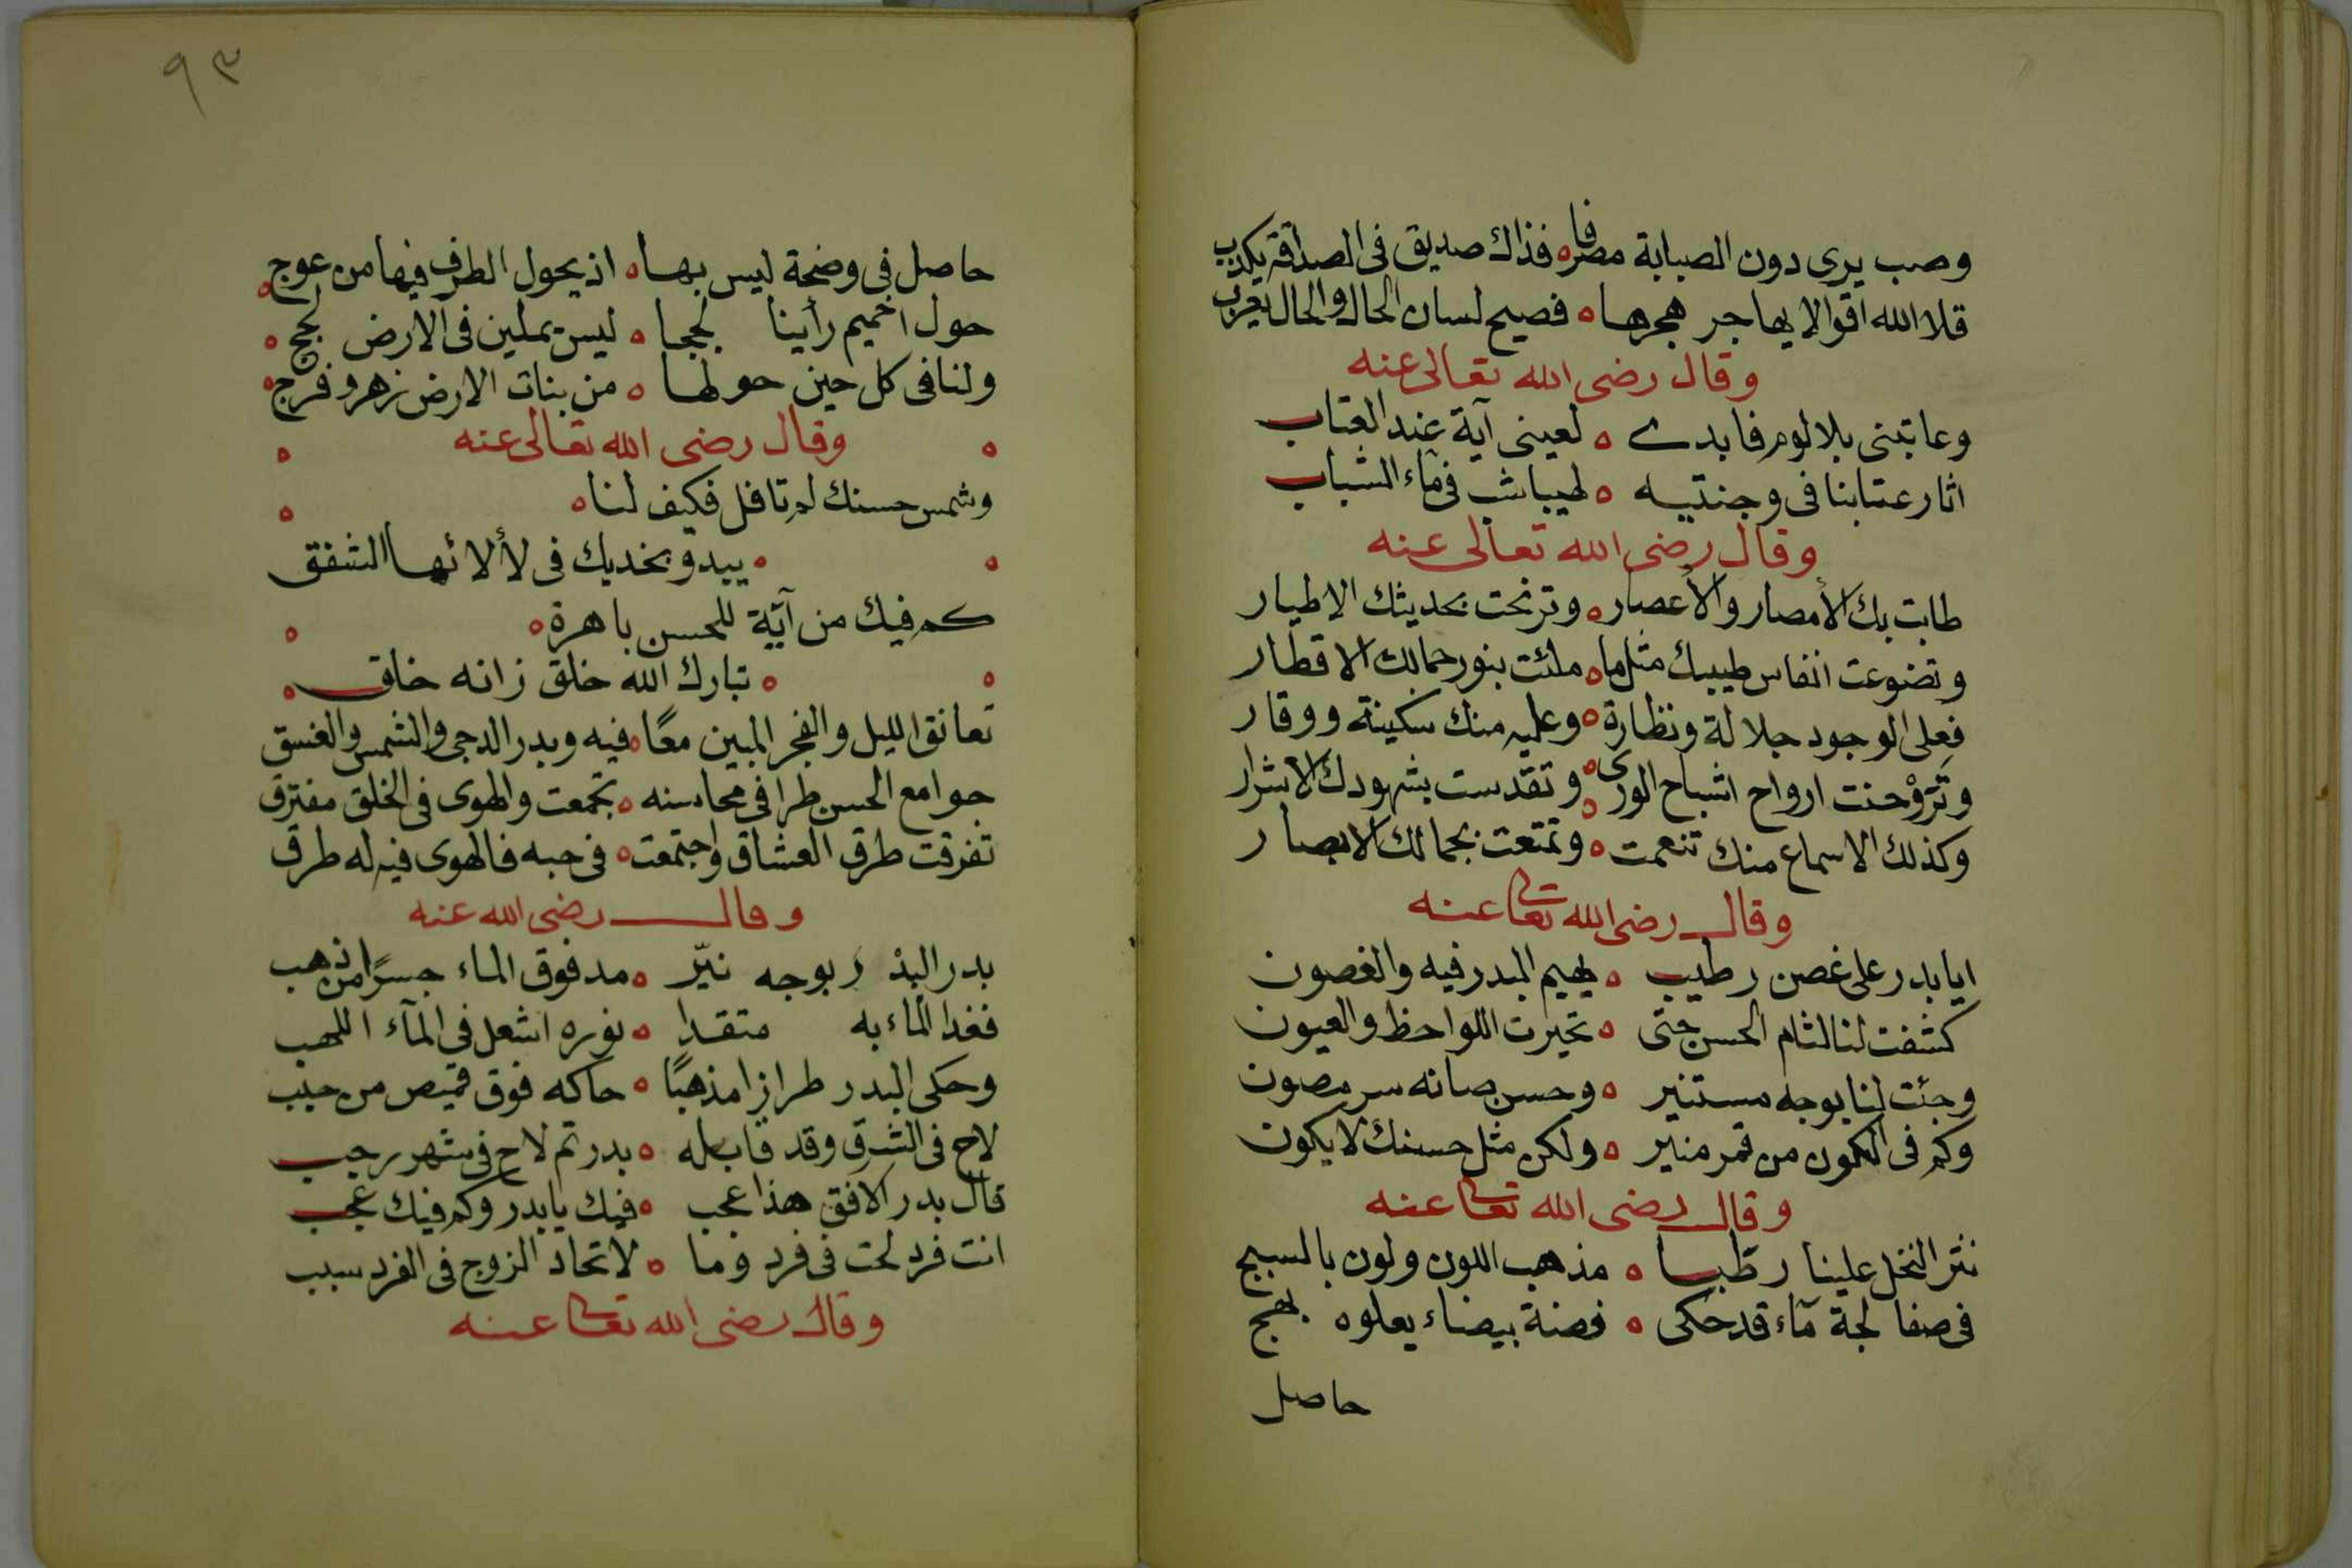 وصب يرى دون الصبابة مصرفا ه فذاك صديق فى الصداقة يكذب
قلا الله اقوالا يهاجر هجرها ه فصيح لسان الحال والحال يعرب
وقال رضى الله تعالى عنه
وعاتبنى بلا لوم فابدى ه لعينى آية عند العتاب
اثار عتابنا فى وجنتيه ه لهيبا شب فى مآء الشباب
وقال رضى الله تعالى عنه
طابت بك الأمصار والأعصار ه وترنحت بحديثك الاطيار
وتضوعت انفاس طيبك مثل ما ه ملئت بنور جمالك الاقطار
فعلى الوجود جلالة ونظارة ه وعليه منك سكينة ووقار
وتروحنت ارواح اشباح الورى ه وتقدست بشهودك الاسرار
وكذلك الاسماع منك تنعمت ه وتمتعت بجمالك الابصار
وقال رضى الله تعالى عنه
ايا بدر على غصن رطيب ه يهيم البدر فيه والغصون
كشفت لنا لثام الحسن حتى ه تحيرت اللواحظ والعيون
وجئت لنا بوجه مستنير ه وحسن صانه سر مصون
وكم فى الكون من قمر منير ه ولكن مثل حسنك لا يكون
وقال رضى الله تعالى عنه
نثر النخل علينا رطبا ه مذهب اللون ولون بالسبج
فى صفا لجة مآء قد حكى ه فضة بيضاء يعلوه بهج
حاصل
٩٣
حاصل فى وضحة ليس بها ه اذ يحول الطرف فيها من عوج
حول اخميم رأينا لججا ه ليس يملين فى الارض لجج
ولنا فى كل حين حولها ه من بنات الارض زهر وفرج
وقال رضى الله تعالى عنه
وشمس حسنك لم تافل فكيف لنا ه
ه يبدو بخديك فى لألائها الشفق
كم فيك من آية للحسن باهرة ه
ه تبارك الله خلق زانه خلق
تعانق الليل والفجر المبين معًا ه فيه وبدر الدجى والشمس والغسق
جوامع الحسن طرا فى محاسنه ه تجمعت والهوى فى الخلق مفترق
تفرقت طرق العشاق واجتمعت ه فى حبه فالهوى فيه له طرق
وقال رضى الله عنه
بدر البدر بوجه نيّر ه مد فوق الماء جسرًا من ذهب
فغدا الماء به متقدا ه نوره اشعل فى المآء اللهب
وحكى البدر طرازا مذهبًا ه حاكه فوق قميص من حبب
لاح فى الشرق وقد قابله ه بدر تم لاح فى شهر رجب
قال بدر الافق هذا عجب ه فيك يا بدر وكم فيك عجب
انت فرد لحت فى فرد وما ه لاتحاد الزوج فى الفرد سبب
وقال رضى الله تعالى عنه